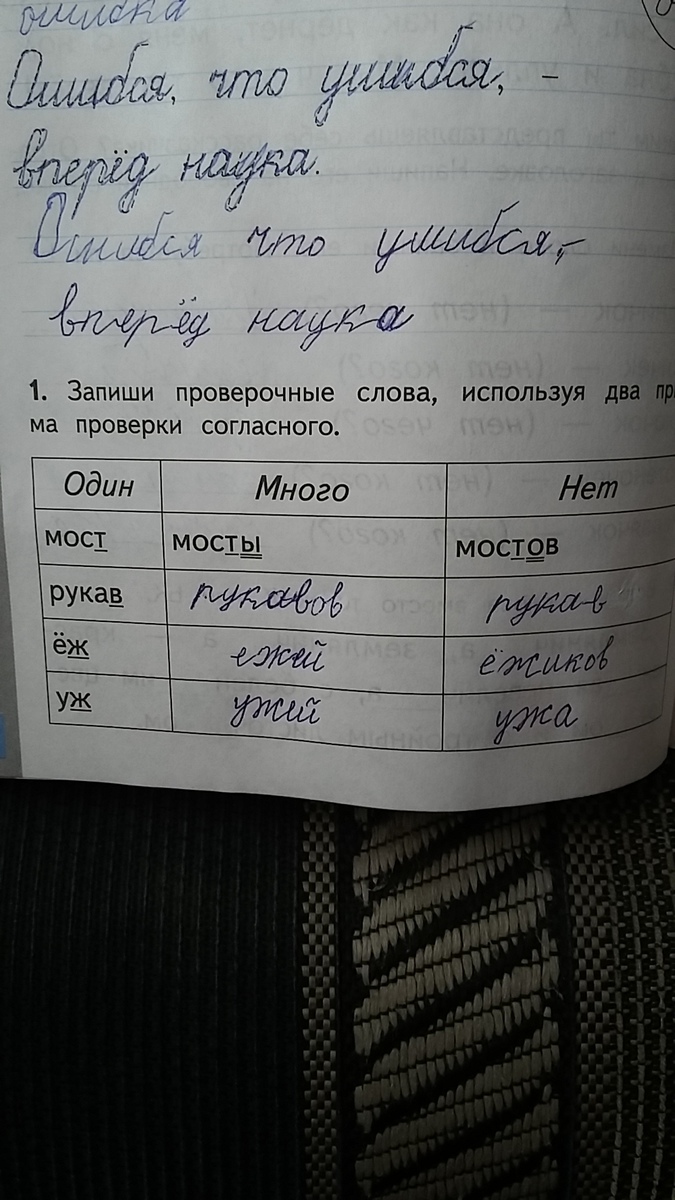 ошибка
Ошибся, что ушибся, –
вперёд наука.
Ошибся что ушибся,–
вперёд наука
1. Запиши проверочные слова, используя два
ма проверки согласного.
Один Много Нет
мост мосты мостов
рукав рукавов рукав
ёж ежей ёжиков
уж ужей ужа